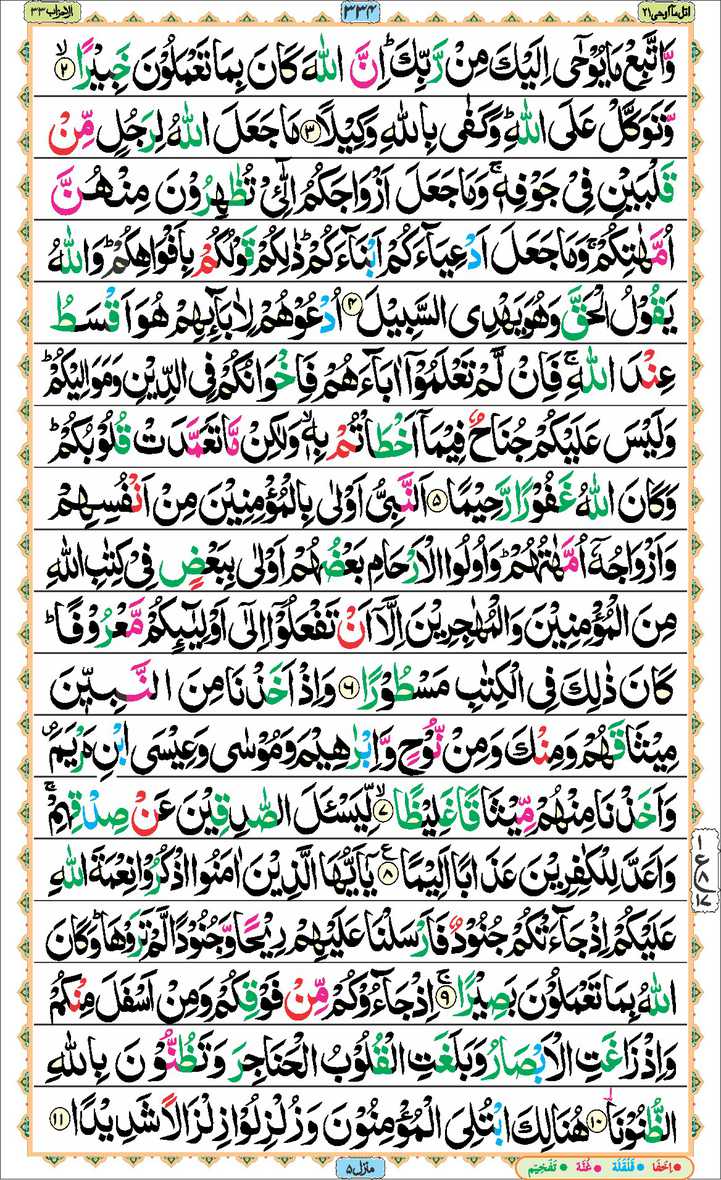 اتل مآ اوحی ۲۱ ۳۳۴ الاحزاب ۳۳
وَّاتَّبِعْ مَا یُوْحٰۤی اِلَیْكَ مِنْ رَّبِّكَ ؕ اِنَّ اللّٰهَ كَانَ بِمَا تَعْمَلُوْنَ خَبِیْرًا ۙ﴿۲﴾
وَّتَوَكَّلْ عَلَی اللّٰهِ ؕ وَكَفٰی بِاللّٰهِ وَكِیْلًا ﴿۳﴾ مَا جَعَلَ اللّٰهُ لِرَجُلٍ مِّنْ
قَلْبَیْنِ فِیْ جَوْفِهٖ ۚ وَمَا جَعَلَ اَزْوَاجَكُمُ الّٰٓـِٔیْ تُظٰهِرُوْنَ مِنْهُنَّ
اُمَّهٰتِكُمْ ۚ وَمَا جَعَلَ اَدْعِیَآءَكُمْ اَبْنَآءَكُمْ ؕ ذٰلِكُمْ قَوْلُكُمْ بِاَفْوَاهِكُمْ ؕ وَاللّٰهُ
یَقُوْلُ الْحَقَّ وَهُوَ یَهْدِی السَّبِیْلَ ﴿۴﴾ اُدْعُوْهُمْ لِاٰبَآىِٕهِمْ هُوَ اَقْسَطُ
عِنْدَ اللّٰهِ ۚ فَاِنْ لَّمْ تَعْلَمُوْۤا اٰبَآءَهُمْ فَاِخْوَانُكُمْ فِی الدِّیْنِ وَمَوَالِیْكُمْ ؕ
وَلَیْسَ عَلَیْكُمْ جُنَاحٌ فِیْمَاۤ اَخْطَاْتُمْ بِهٖ ۙ وَلٰكِنْ مَّا تَعَمَّدَتْ قُلُوْبُكُمْ ؕ
وَكَانَ اللّٰهُ غَفُوْرًا رَّحِیْمًا ﴿۵﴾ اَلنَّبِیُّ اَوْلٰی بِالْمُؤْمِنِیْنَ مِنْ اَنْفُسِهِمْ
وَاَزْوَاجُهٗۤ اُمَّهٰتُهُمْ ؕ وَاُولُوا الْاَرْحَامِ بَعْضُهُمْ اَوْلٰی بِبَعْضٍ فِیْ كِتٰبِ اللّٰهِ
مِنَ الْمُؤْمِنِیْنَ وَالْمُهٰجِرِیْنَ اِلَّاۤ اَنْ تَفْعَلُوْۤا اِلٰۤی اَوْلِیٰٓىِٕكُمْ مَّعْرُوْفًا ؕ
كَانَ ذٰلِكَ فِی الْكِتٰبِ مَسْطُوْرًا ﴿۶﴾ وَاِذْ اَخَذْنَا مِنَ النَّبِیّٖنَ
مِیْثَاقَهُمْ وَمِنْكَ وَمِنْ نُّوْحٍ وَّاِبْرٰهِیْمَ وَمُوْسٰی وَعِیْسَی ابْنِ مَرْیَمَ ۪
وَاَخَذْنَا مِنْهُمْ مِّیْثَاقًا غَلِیْظًا ۙ﴿۷﴾ لِّیَسْـَٔلَ الصّٰدِقِیْنَ عَنْ صِدْقِهِمْ ۚ
وَاَعَدَّ لِلْكٰفِرِیْنَ عَذَابًا اَلِیْمًا ﴿۸﴾ یٰۤاَیُّهَا الَّذِیْنَ اٰمَنُوا اذْكُرُوْا نِعْمَةَ اللّٰهِ
عَلَیْكُمْ اِذْ جَآءَتْكُمْ جُنُوْدٌ فَاَرْسَلْنَا عَلَیْهِمْ رِیْحًا وَّجُنُوْدًا لَّمْ تَرَوْهَا ؕ وَكَانَ
اللّٰهُ بِمَا تَعْمَلُوْنَ بَصِیْرًا ۚ﴿۹﴾ اِذْ جَآءُوْكُمْ مِّنْ فَوْقِكُمْ وَمِنْ اَسْفَلَ مِنْكُمْ
وَاِذْ زَاغَتِ الْاَبْصَارُ وَبَلَغَتِ الْقُلُوْبُ الْحَنَاجِرَ وَتَظُنُّوْنَ بِاللّٰهِ
الظُّنُوْنَا ﴿۱۰﴾ هُنَالِكَ ابْتُلِیَ الْمُؤْمِنُوْنَ وَزُلْزِلُوْا زِلْزَالًا شَدِیْدًا ﴿۱۱﴾
منزل ۵
اِخفا • قلقلہ • غنہ • تفخیم